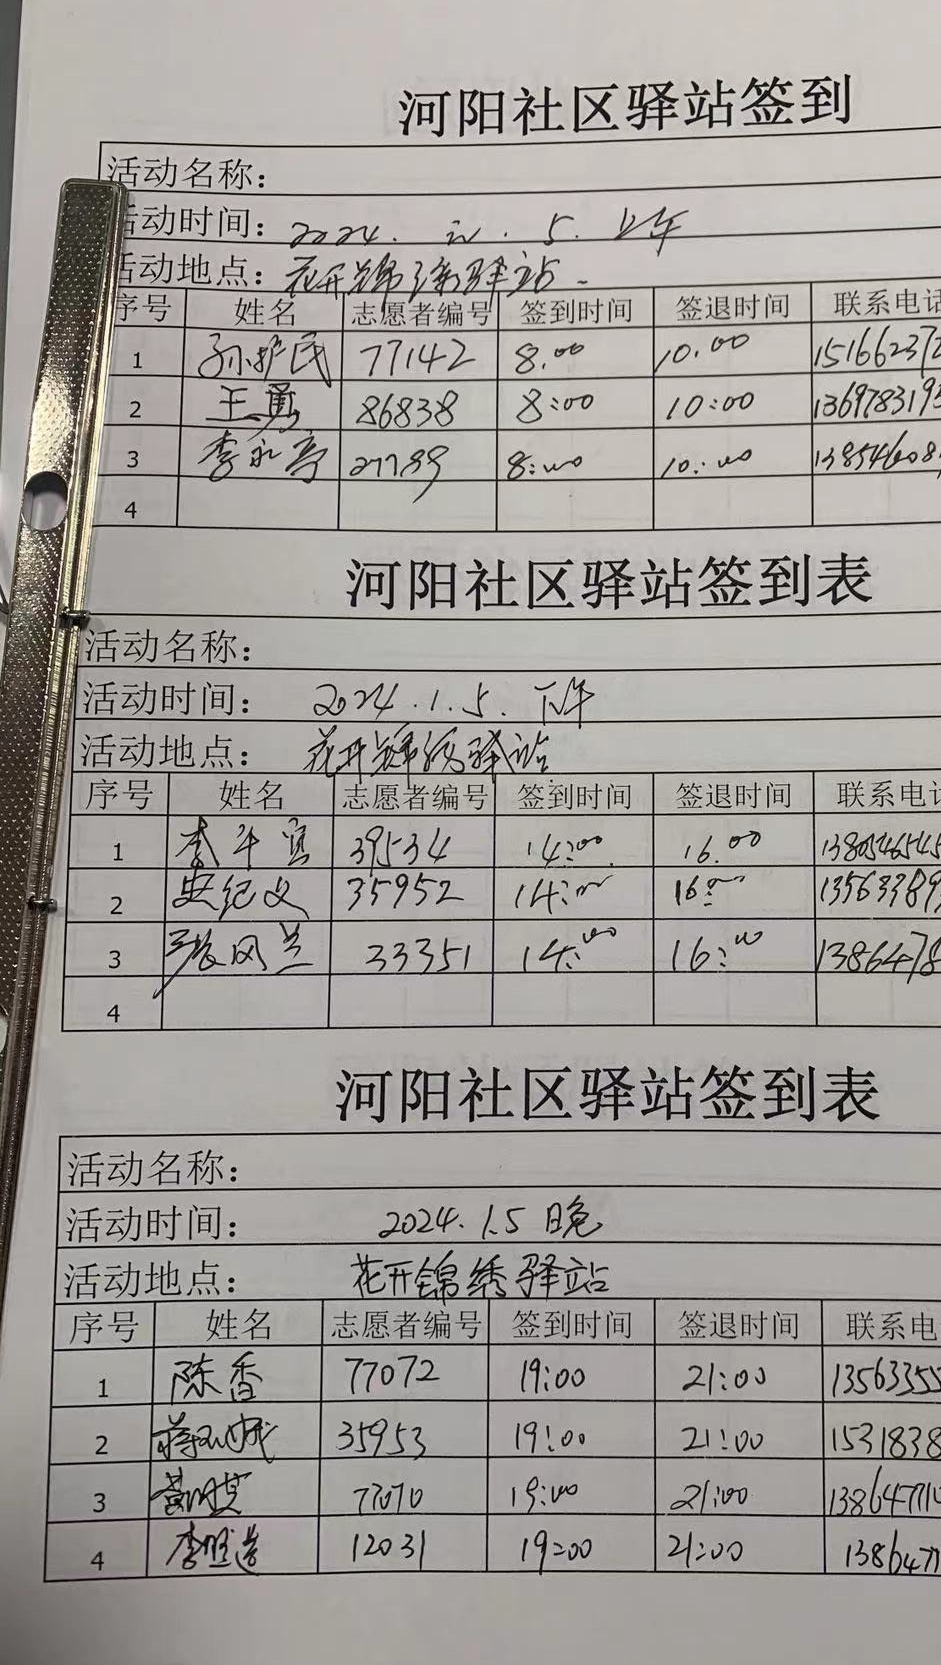 河阳社区驿站签到
活动名称：
活动时间：2024. 元. 5. 上午
活动地点：花开锦绣驿站
序号 姓名 志愿者编号 签到时间 签退时间 联系电话
1 孙护民 77142 8.00 10.00 15166237
2 王勇 86838 8:00 10:00 136978319
3 李永亭 27799 8:00 10:00 13854608
4
河阳社区驿站签到表
活动名称：
活动时间： 2024.1.5. 下午
活动地点： 花开锦绣驿站
序号 姓名 志愿者编号 签到时间 签退时间 联系电话
1 39534 14:00 16.00 1380546545
2 史纪文 35952 14:00 16:00 13563389
3 张风兰 33351 14:00 16:00 1386478
4
河阳社区驿站签到表
活动名称：
活动时间： 2024.1.5 晚
活动地点： 花开锦绣驿站
序号 姓名 志愿者编号 签到时间 签退时间 联系电
1 陈香 77072 19:00 21:00 13563355
2 35953 19:00 21:00 1531838
3 77070 19:00 21:00 138647710
4 12031 19:00 21:00 1386477